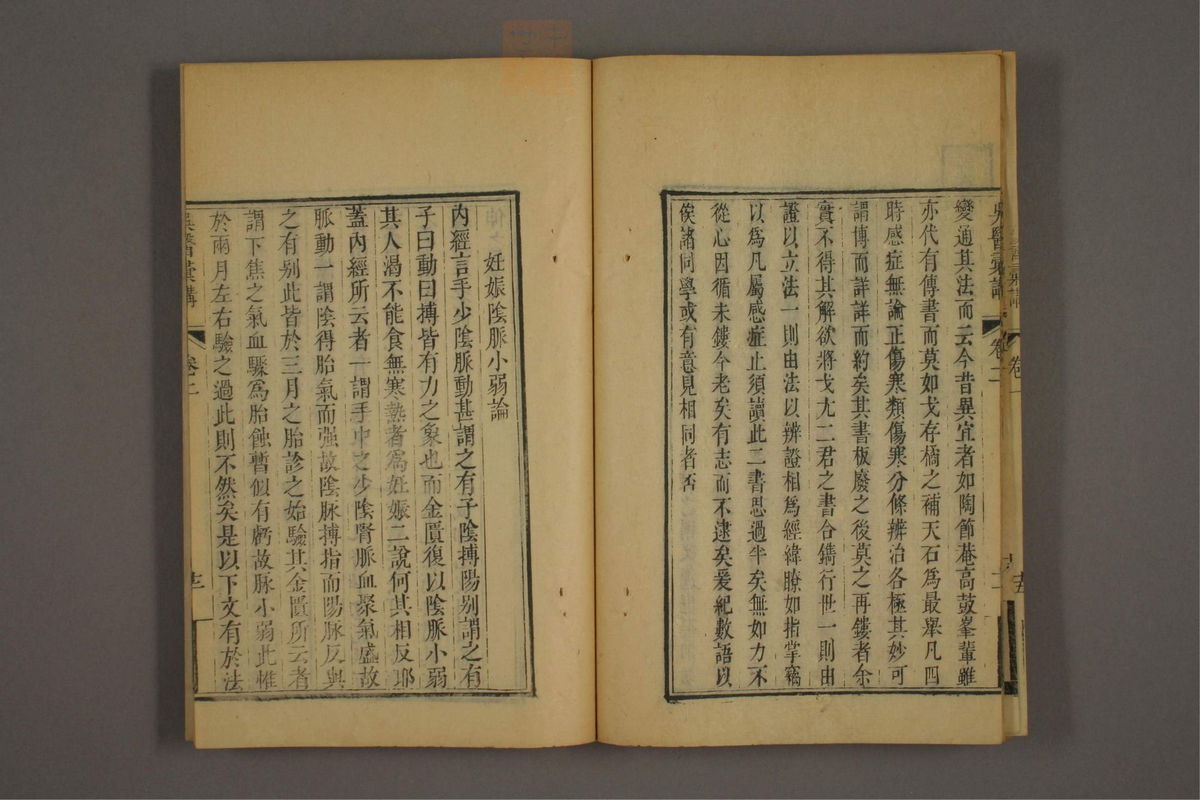 變通其法而云今昔異宜者如陶節菴高鼓峯輩雖
亦代有傳書而莫如戈存橘之補天石爲最舉凡四
時感症無論正傷寒類傷寒分條辨治各極其妙可
謂博而詳詳而約矣其書板廢之後莫之再鏤者余
實不得其解欲將戈尤二君之書合鐫行世一則由
證以立法一則由法以辨證相爲經緯瞭如指掌竊
以爲凡屬感症止須讀此二書思過半矣無如力不
從心因循未鏤今老矣有志而不逮矣爰紀數語以
俟諸同學或有意見相同者否
妊娠陰脈小弱論
內經言手少陰脈動甚謂之有子陰搏陽别謂之有
子曰動曰搏皆有力之象也而金匱復以陰脈小弱
其人渴不能食無寒熱者爲妊娠二說何其相反耶
蓋內經所云者一謂手中之少陰腎脈血聚氣盛故
脈動一謂陰得胎氣而强故陰脉搏指而陽脈反與
之有别此皆於三月之胎診之始驗其金匱所云者
謂下焦之氣血驟爲胎蝕暫似有虧故脉小弱此惟
於兩月左右驗之過此則不然矣是以下文有於法
卷二